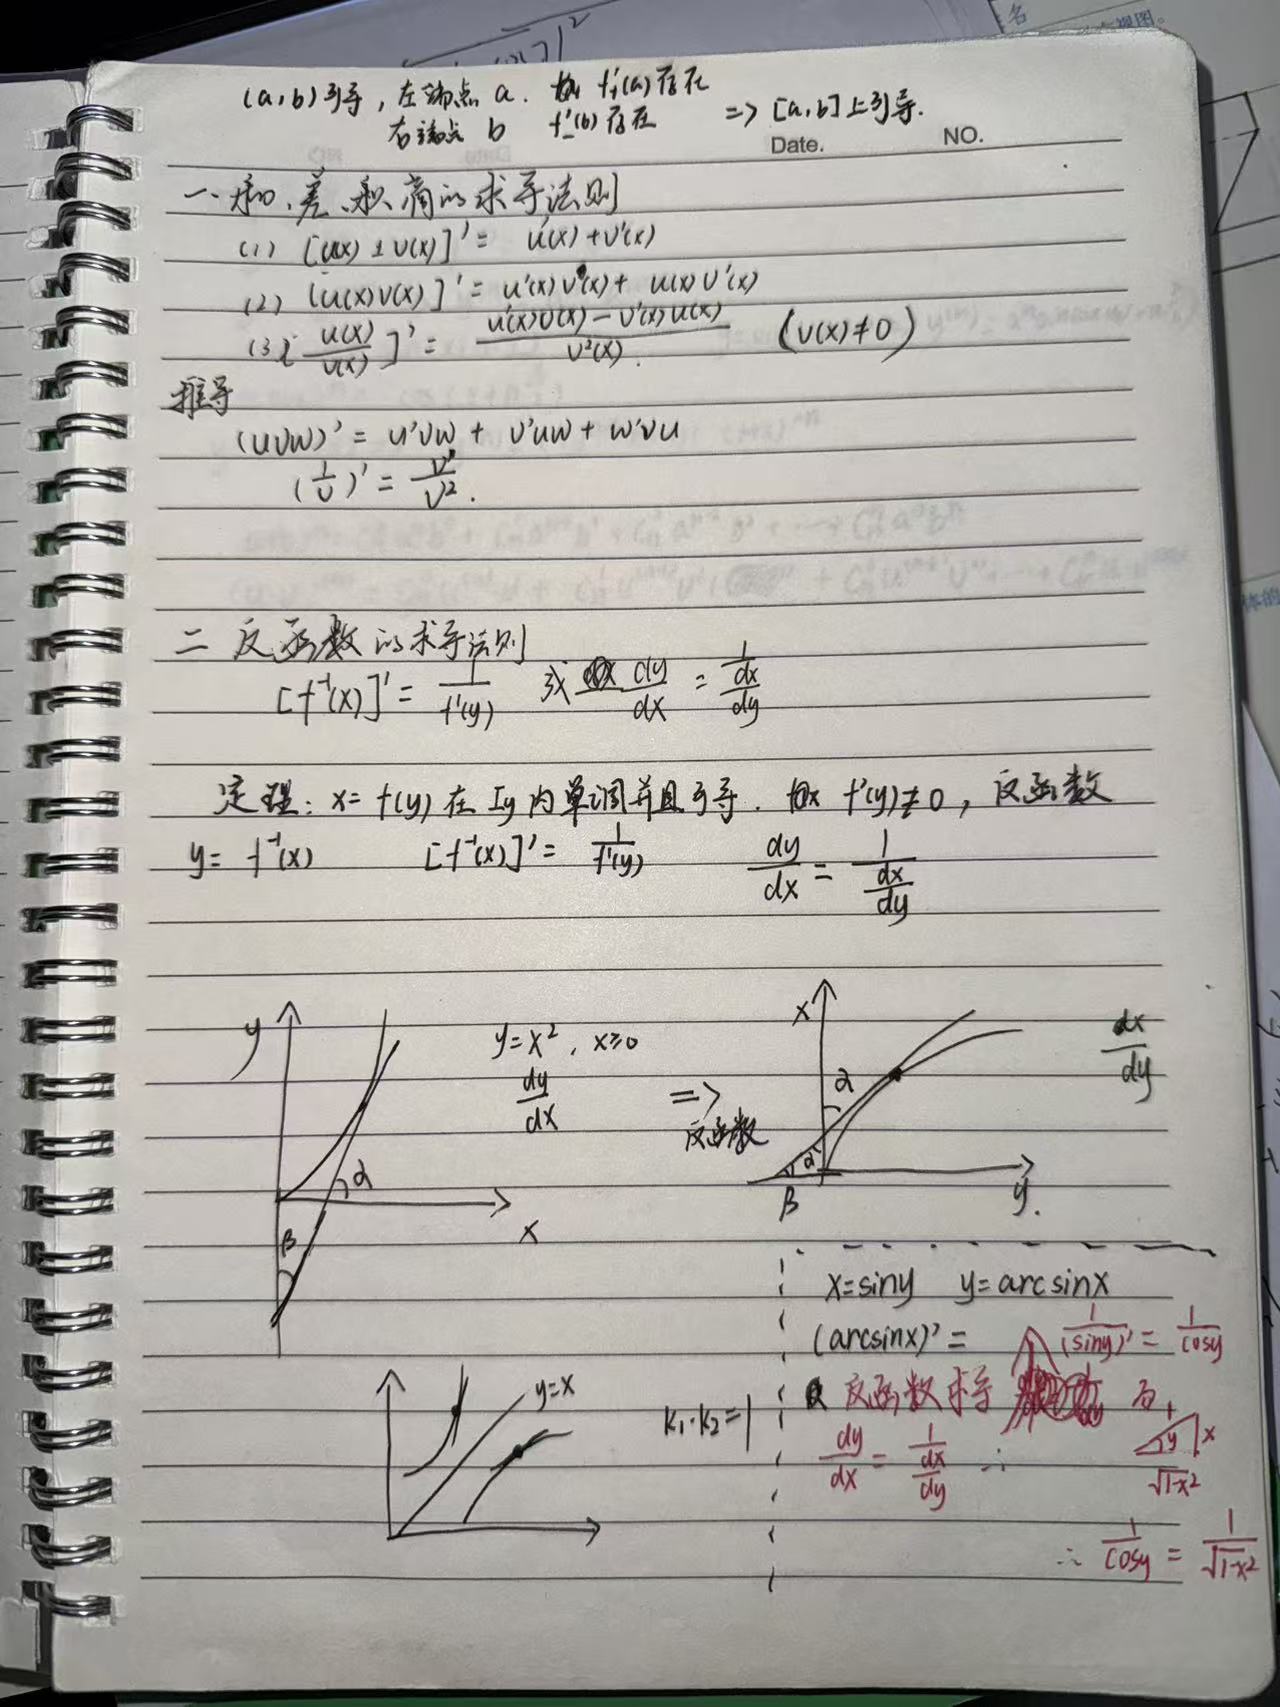 (a,b)可导,左端点 a. f'₊(a)存在
右端点 b f'₋(b)存在 => [a,b]上可导.
Date. NO.
一.和、差、积、商的求导法则
(1) [u(x) ± v(x)]' = u'(x)+v'(x)
(2) [u(x)v(x)]' = u'(x)v(x)+ u(x)v'(x)
(3) [u(x)/v(x)]' = (u'(x)v(x) - v'(x)u(x))/v²(x). (v(x)≠0)
推导
(uvw)' = u'vw + v'uw + w'vu
(1/v)' = v'/v².
二 反函数的求导法则
[f⁻¹(x)]' = 1/f'(y) 或 dy/dx = 1/(dx/dy)
定理: x= f(y) 在 Iy 内 单调并且可导. f'(y)≠0, 反函数
y= f⁻¹(x) [f⁻¹(x)]' = 1/f'(y) dy/dx = 1/(dx/dy)
y
y=x², x≥0
dy/dx
α
x
β
=>
反函数
x
α
α
β
y.
dx/dy
y=x
k₁·k₂=1
x=siny y=arcsinx
(arcsinx)' = 1/(siny)' = 1/cosy
反函数求导
dy/dx = 1/(dx/dy) ∴
1
y
x
√1-x²
∴ 1/cosy = 1/√1-x²